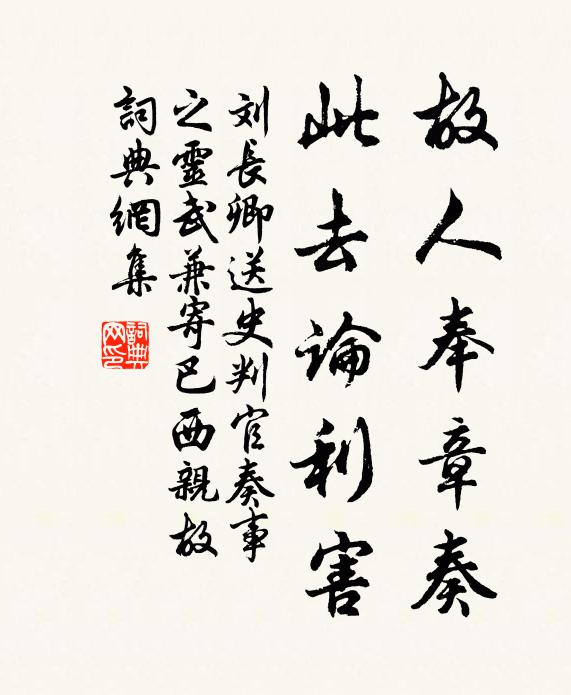 故人奉章奏
此去論利害
刘長卿送史判官奏事
之靈武兼寄巴西親故
詞典網集
詞典网印